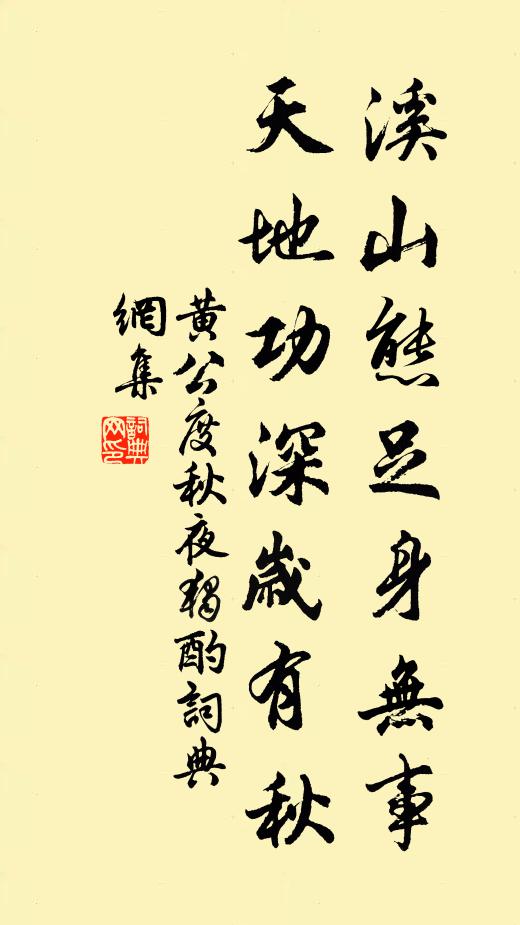 溪山態足身無事
天地功深歲有秋
黃公度秋夜獨酌詞典
網集
詞典
网印